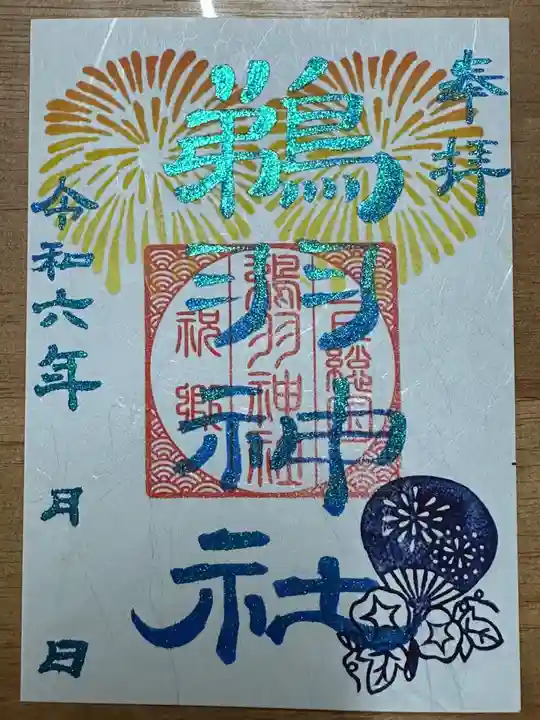 奉拝
鵜羽神社
令和六年 月 日
鵜羽神社